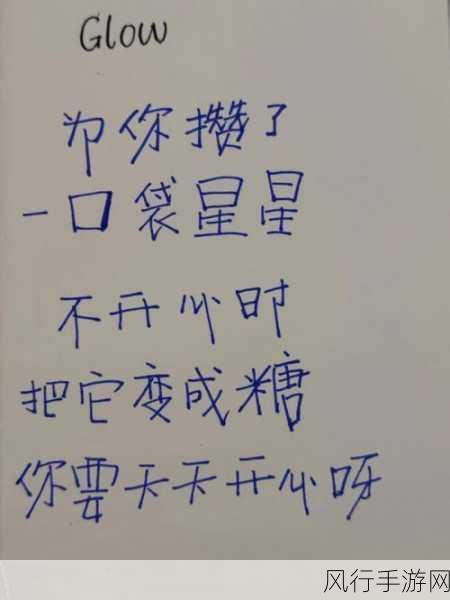 Glow
为你攒了
一口袋星星
不开心时
把它变成糖
你要天天开心呀
风行手游网